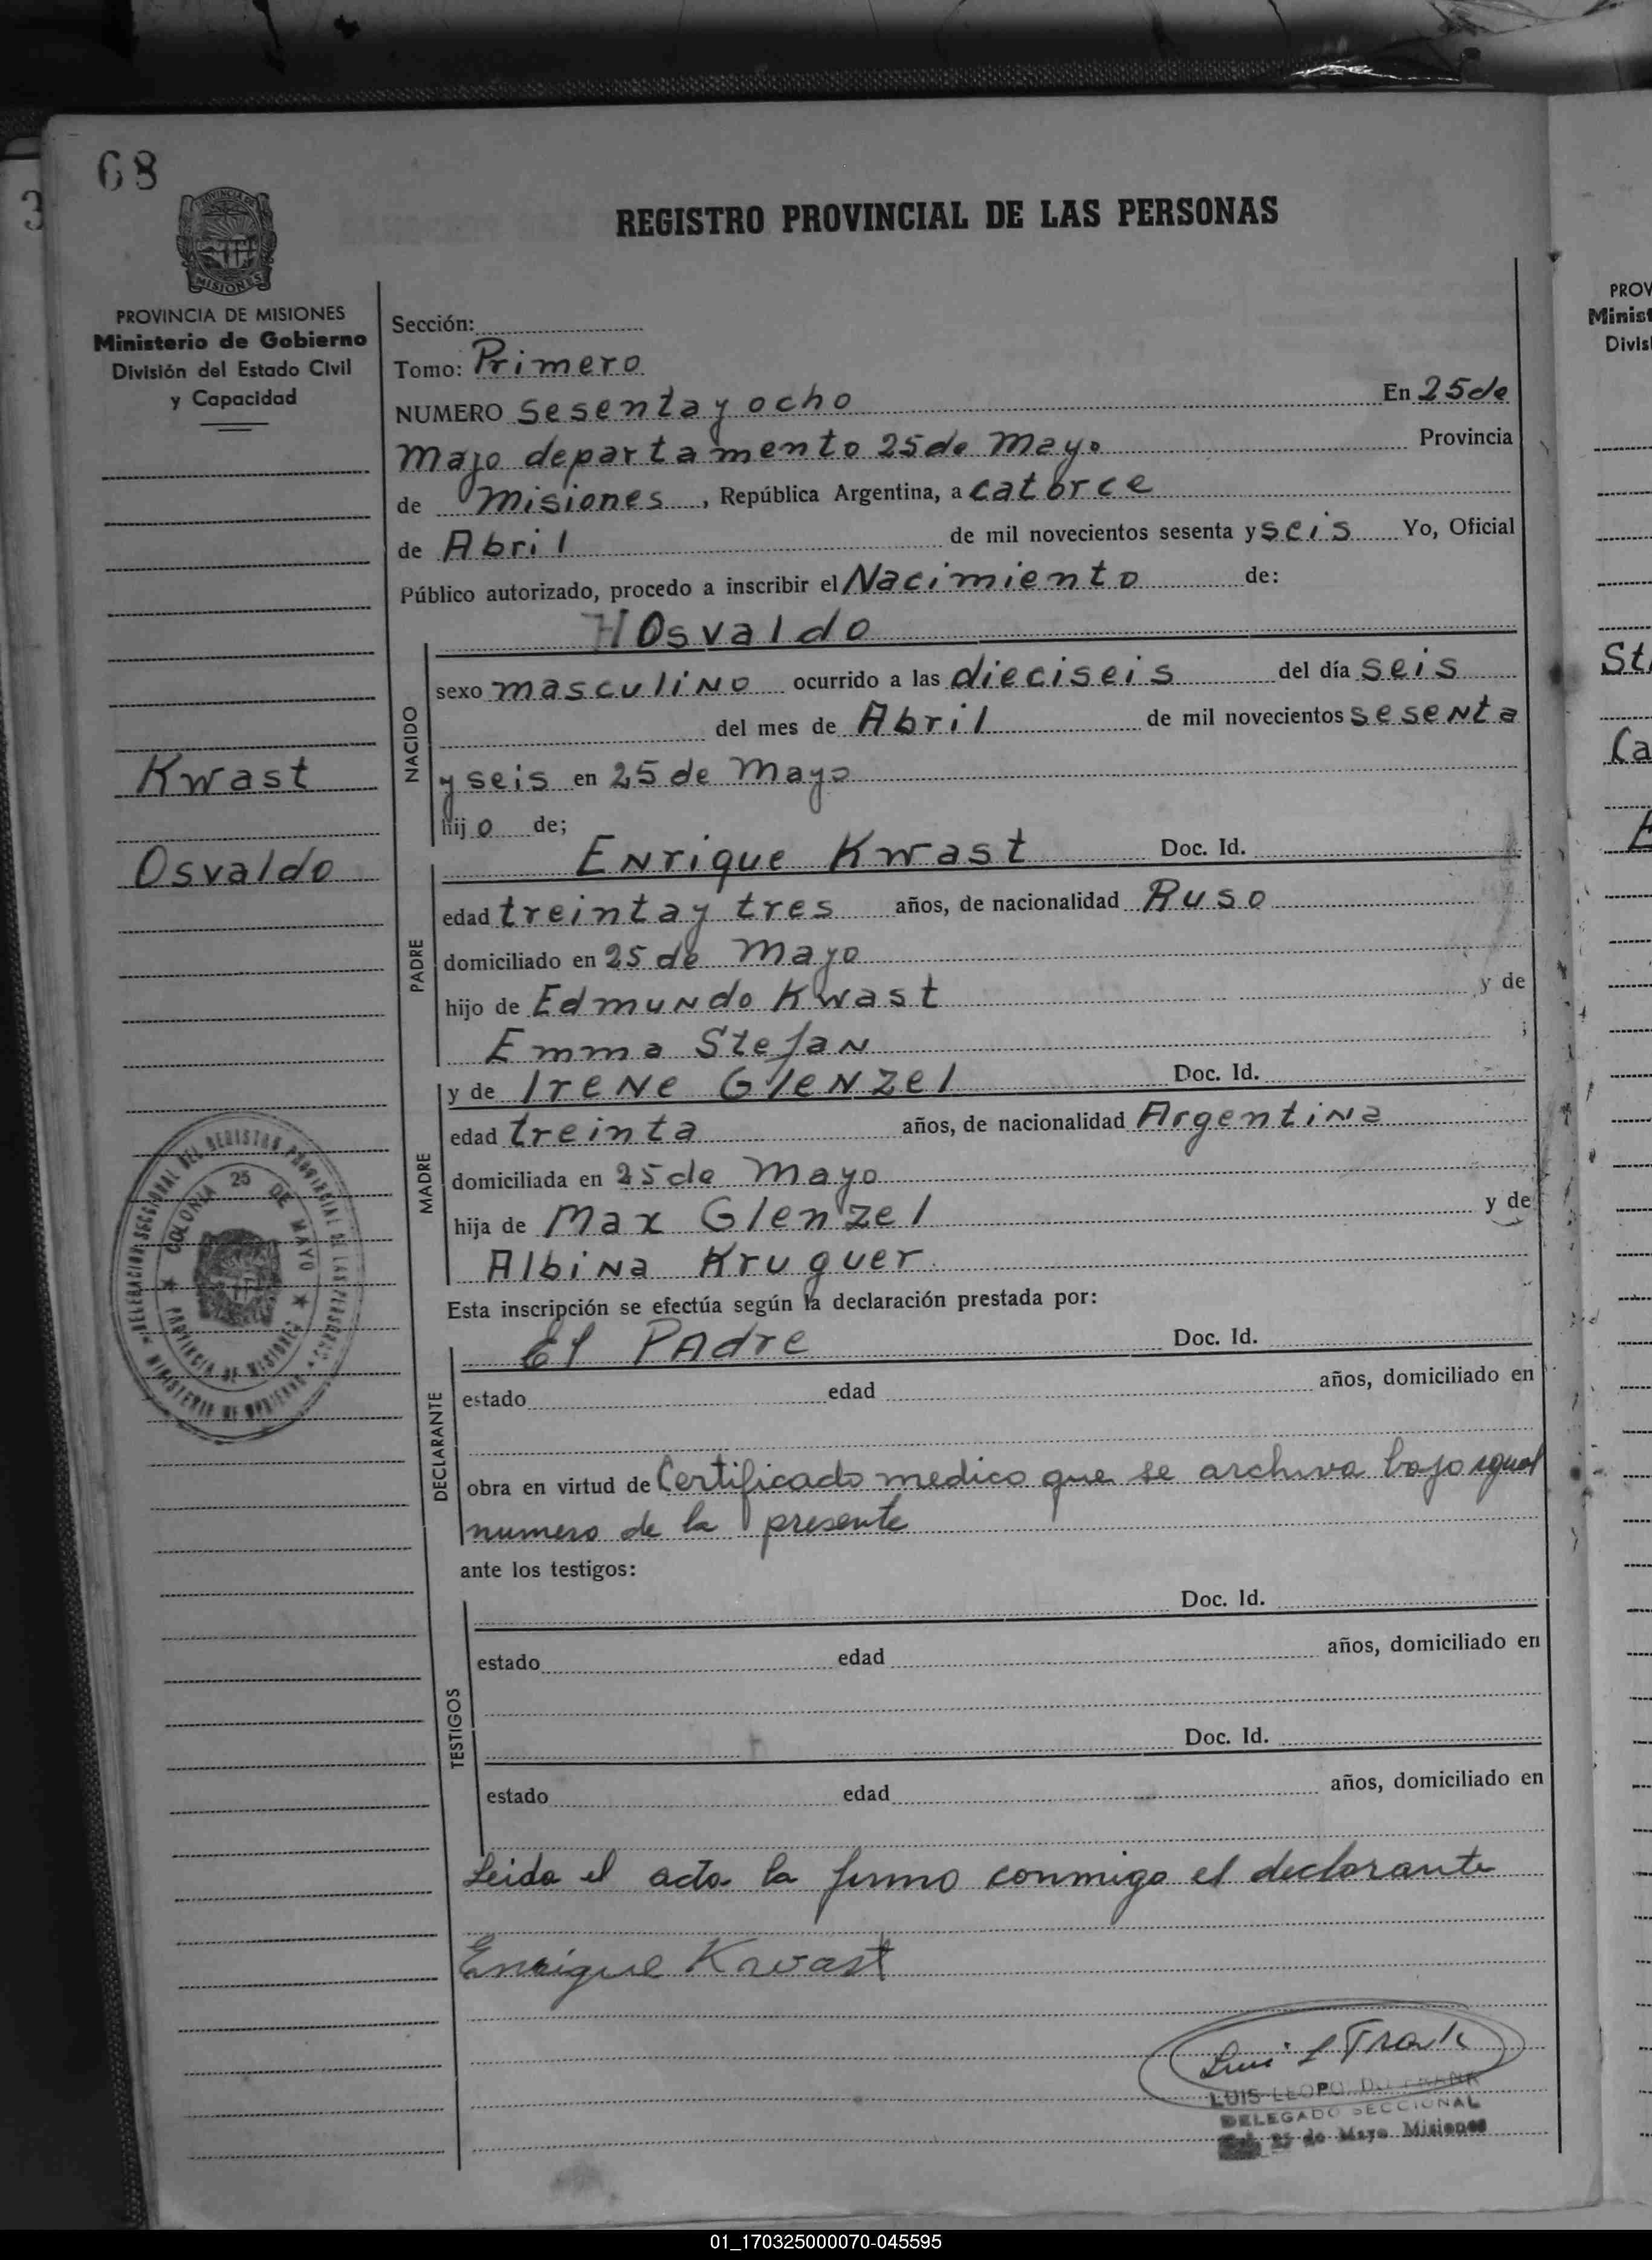 68
REGISTRO PROVINCIAL DE LAS PERSONAS
PROVINCIA DE MISIONES
Ministerio de Gobierno
División del Estado Civil
y Capacidad
Kwast
Osvaldo
DELEGACION SECCIONAL DEL REGISTRO PROVINCIAL DE LAS PERSONAS
COLONIA 25 DE MAYO
PROVINCIA DE MISIONES
MINISTERIO DE GOBIERNO
Sección:
Tomo: Primero
NUMERO sesenta y ocho En 25 de
Mayo departamento 25 de Mayo Provincia
de Misiones, República Argentina, a catorce
de Abril de mil novecientos sesenta y seis Yo, Oficial
Público autorizado, procedo a inscribir el Nacimiento de:
HOsvaldo
NACIDO
sexo masculino ocurrido a las dieciseis del día seis
del mes de Abril de mil novecientos sesenta
y seis en 25 de Mayo
hijo de;
PADRE
Enrique Kwast Doc. Id.
edad treinta y tres años, de nacionalidad Ruso
domiciliado en 25 de Mayo
hijo de Edmundo Kwast y de
Emma Stefan ;
MADRE
y de Irene Glenzel Doc. Id.
edad treinta años, de nacionalidad Argentina
domiciliada en 25 de Mayo
hija de Max Glenzel y de
Albina Kruguer
Esta inscripción se efectúa según la declaración prestada por:
DECLARANTE
El PAdre Doc. Id.
estado edad años, domiciliado en
obra en virtud de Certificado medico que se archiva bajo igual
numero de la presente
ante los testigos:
TESTIGOS
Doc. Id.
estado edad años, domiciliado en
Doc. Id.
estado edad años, domiciliado en
Leida el acta la firmo conmigo el declarante
Enrique Kwast
Luis L Frank
LUIS LEOPOLDO FRANK
DELEGADO SECCIONAL
25 de Mayo Misiones
3
PROV
Minist
Divis
St
Ca
E
01_170325000070-045595